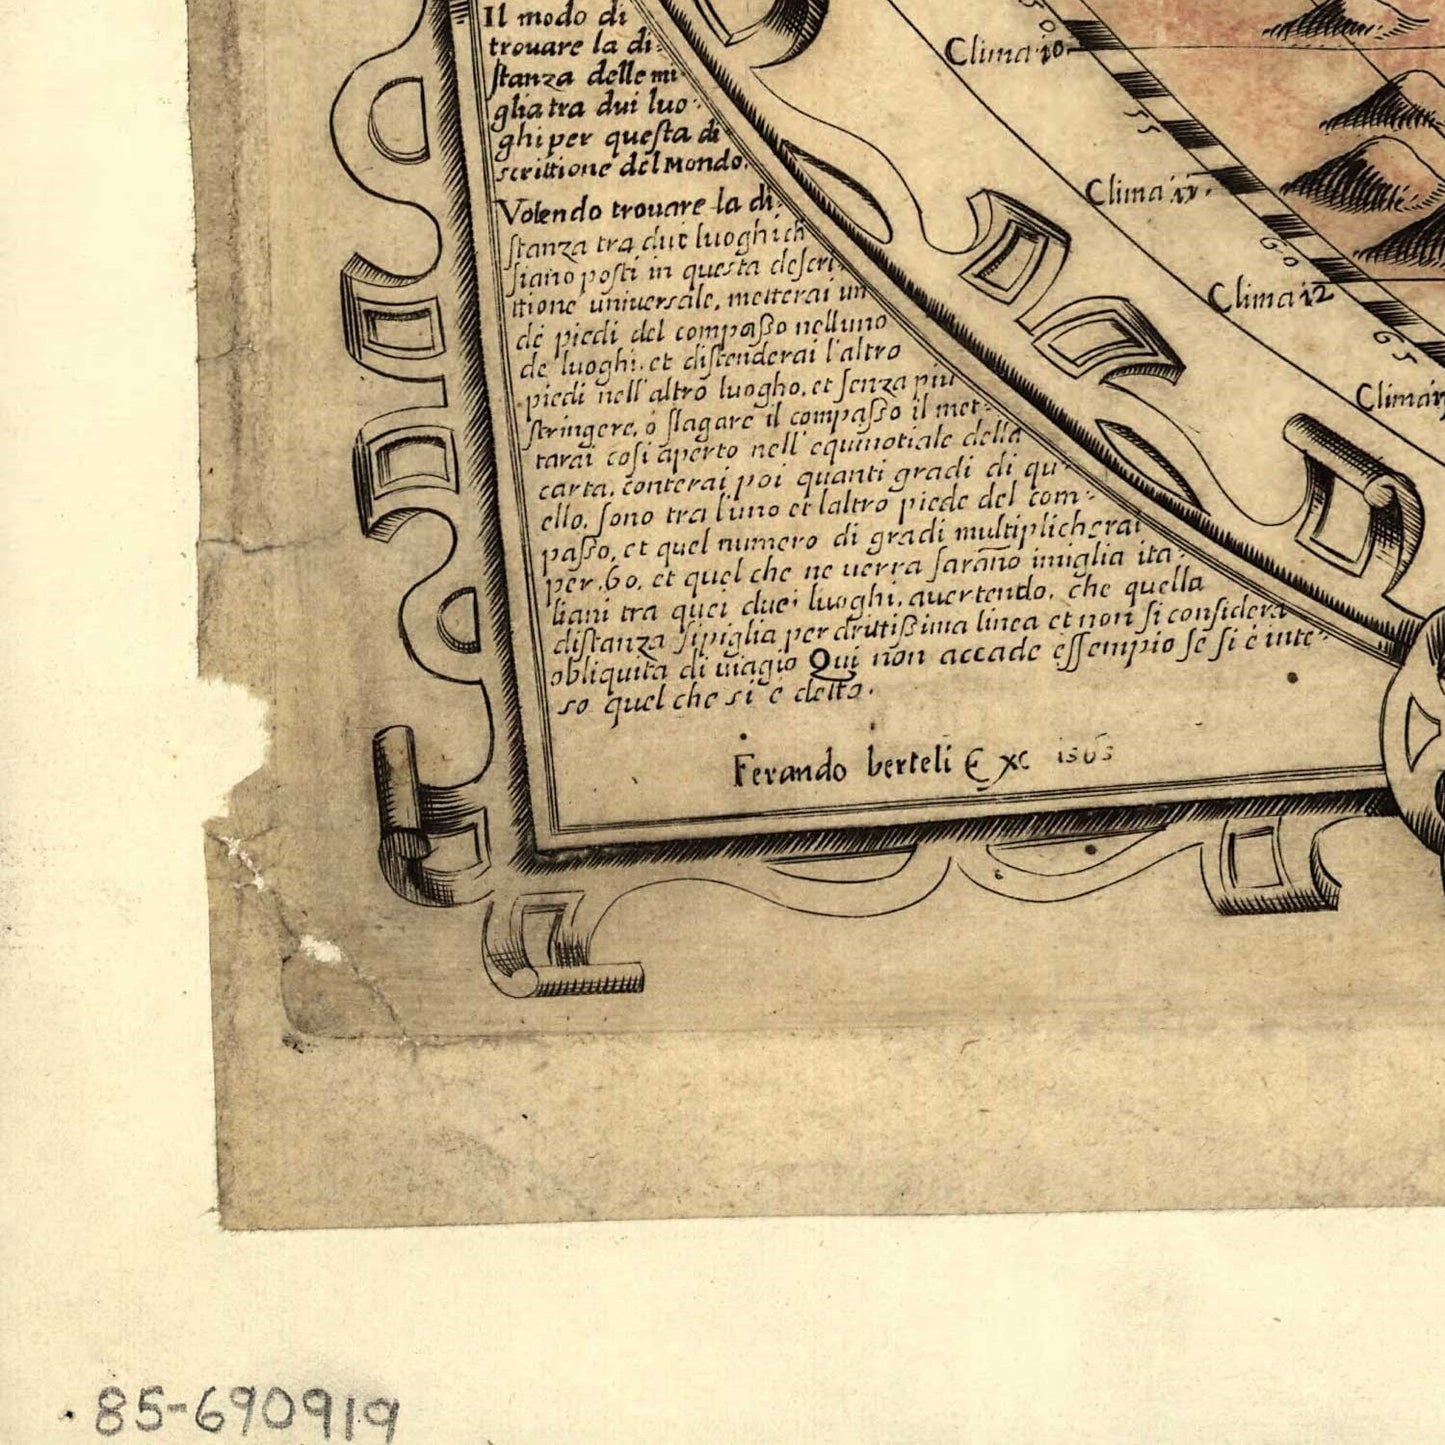 Il modo di
trouare la di:
stanza delle mi
glia tra dui luo:
ghi per questa di
scrittione del Mondo.
Volendo trouare la di:
stanza tra due luoghi ch
siano posti in questa descri:
ttione uniuersale, metterai un
de piedi del compasso nelluno
de luoghi. et distenderai l'altro
piedi nell'altro luogho, et senza piu
stringere, o slagare il compasso il met:
tarai cosi aperto nell'equinotiale della
carta. conterai poi quanti gradi di qu
ello, sono tra l'uno et laltro piede del com:
passo, et quel numero di gradi multiplicherai
per .60. et quel che ne uerra saranno imiglia ita:
liani tra quei duei luoghi. auertendo, che quella
distanza sipiglia per drittissima linea et non si considera
obliquita di uiagio Qui non accade essempio se si è inte:
so quel che si è detto.
Ferando berteli Exc 1563
50
Clima 10
55
Clima 11.
60
Clima 12
65
Clima
85-690919